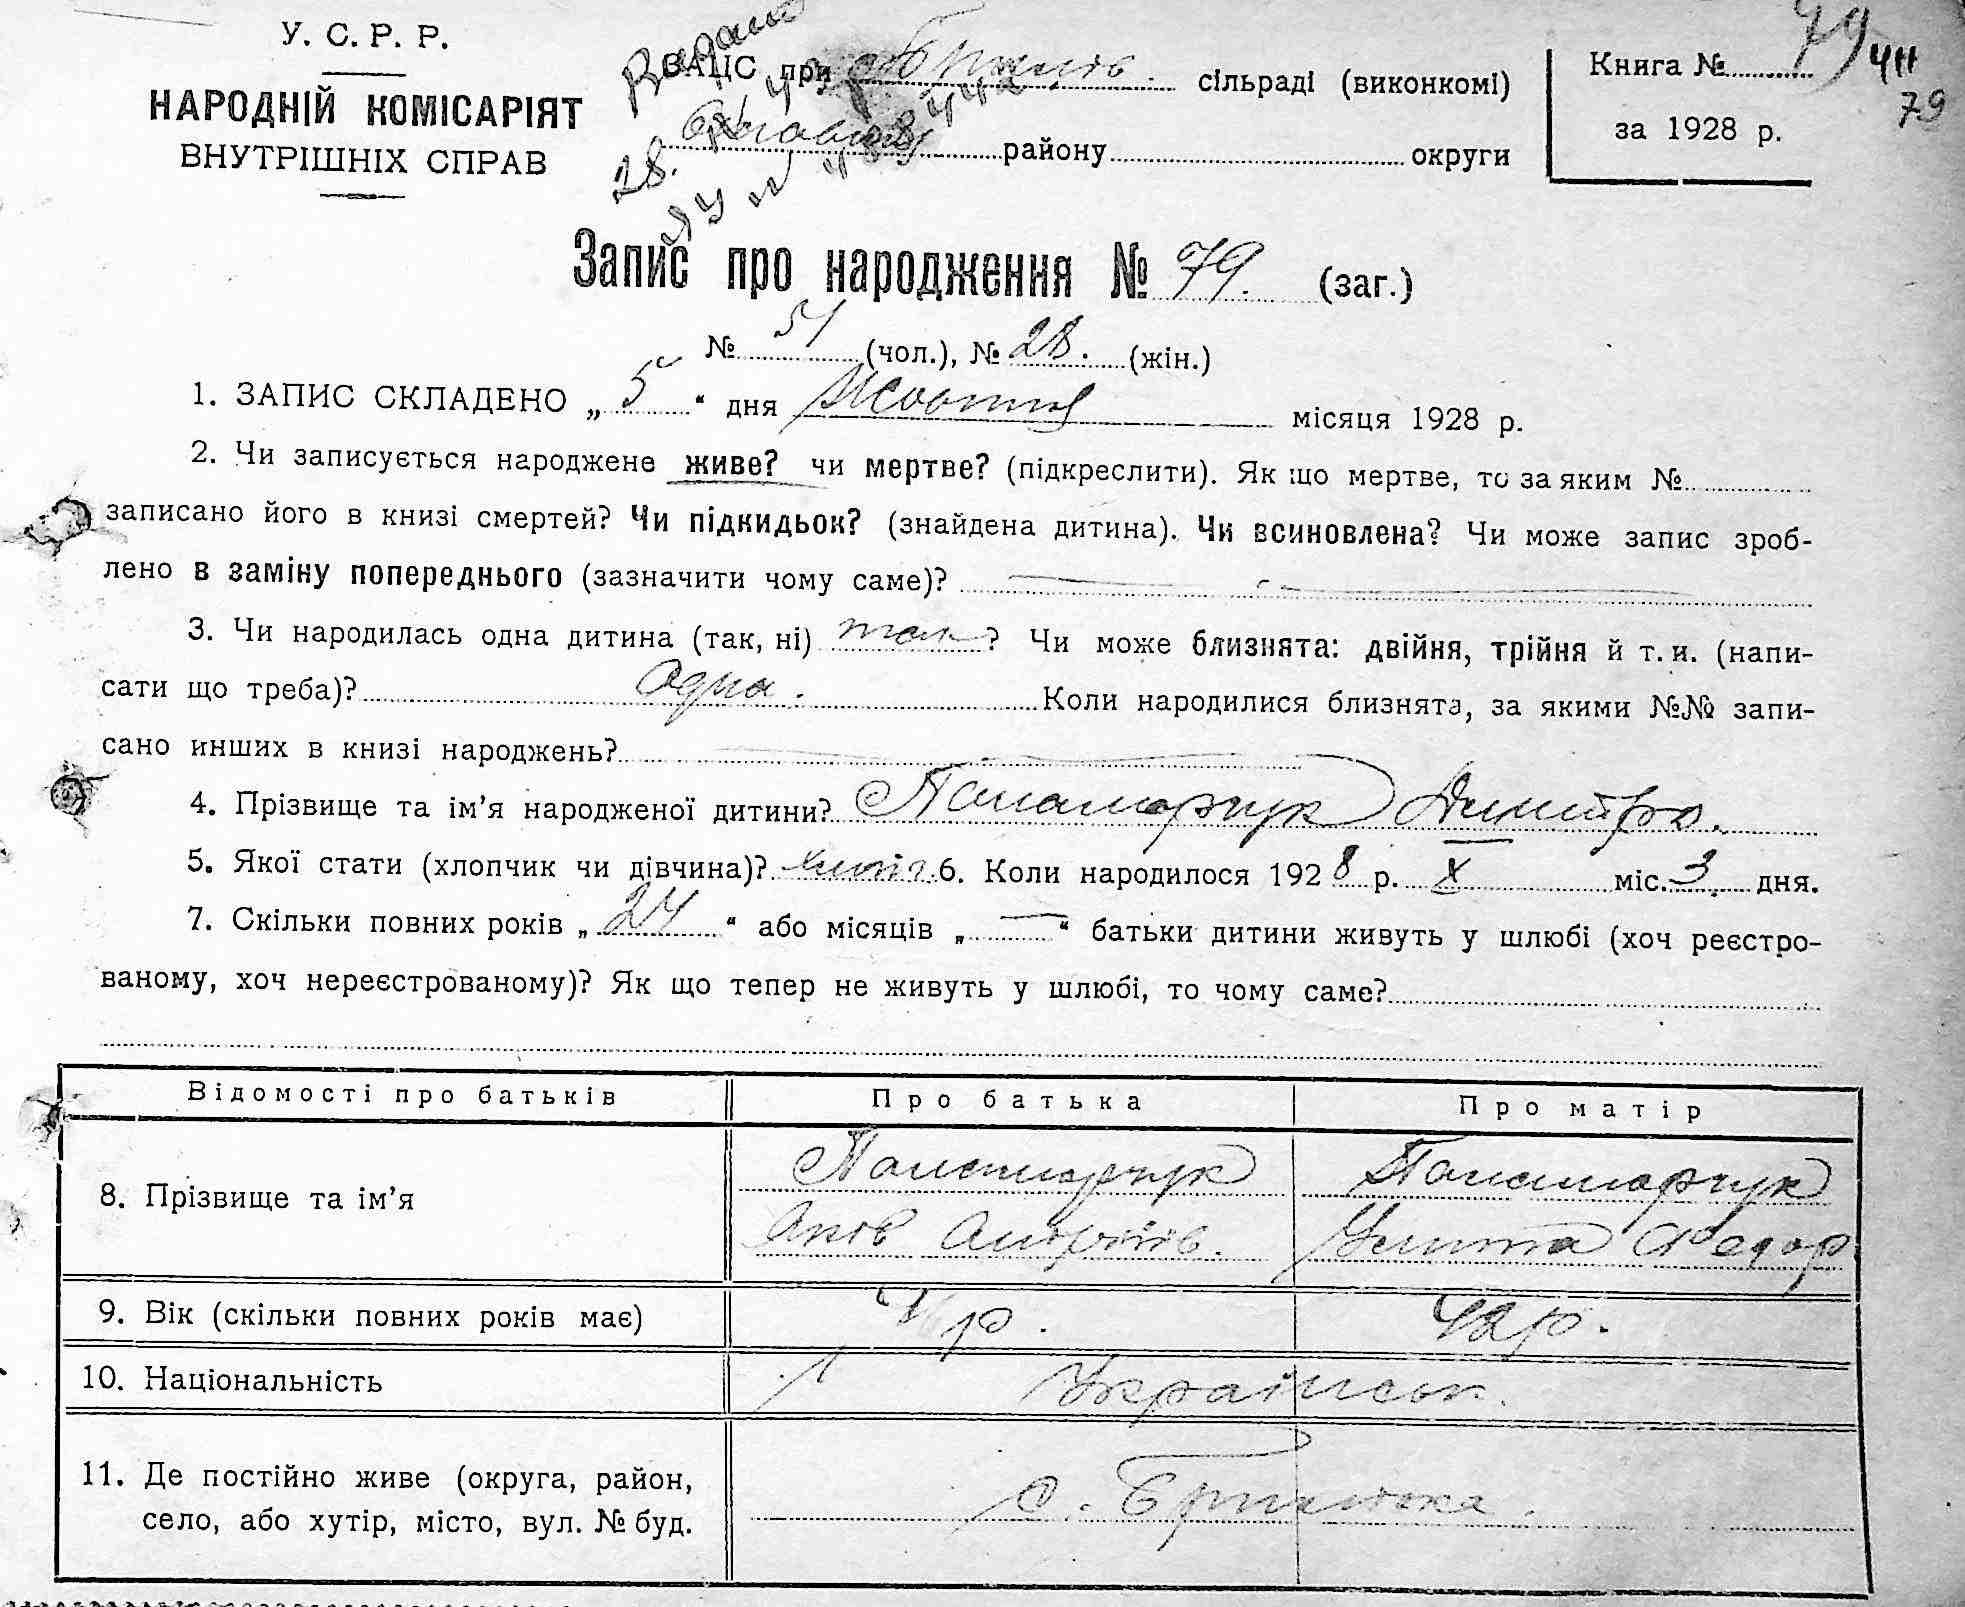 У. С. Р. Р.
НАРОДНІЙ КОМІСАРІЯТ
ВНУТРІШНІХ СПРАВ
ЗАЦС при сільраді (виконкомі)
району округи
Книга № 79
за 1928 р.
ЧН
79
28.
Запис про народження № 79. (заг.)
№ 51 (чол.), № 28. (жін.)
1. ЗАПИС СКЛАДЕНО „ 5 “ дня Жовтня місяця 1928 р.
2. Чи записується народжене живе? чи мертве? (підкреслити). Як що мертве, то за яким №
записано його в книзі смертей? Чи підкидьок? (знайдена дитина). Чи всиновлена? Чи може запис зроб-
лено в заміну попереднього (зазначити чому саме)?
3. Чи народилась одна дитина (так, ні) так? Чи може близнята: двійня, трійня й т. и. (напи-
сати що треба)? Одна. Коли народилися близнята, за якими №№ запи-
сано инших в книзі народжень?
4. Прізвище та ім’я народженої дитини? Панамарчук Дмитро.
5. Якої стати (хлопчик чи дівчина)? хлопч. 6. Коли народилося 1928 р. X міс. 3. дня.
7. Скільки повних років „ 24 “ або місяців „ — “ батьки дитини живуть у шлюбі (хоч реєстро-
ваному, хоч нереєстрованому)? Як що тепер не живуть у шлюбі, то чому саме?
Відомості про батьків Про батька Про матір
8. Прізвище та ім’я Панамарчук Яків Андріїв. Панамарчук Улита Федор
9. Вік (скільки повних років має) р. 42 р.
10. Національність Українськ.
11. Де постійно живе (округа, район,
село, або хутір, місто, вул. № буд. с.